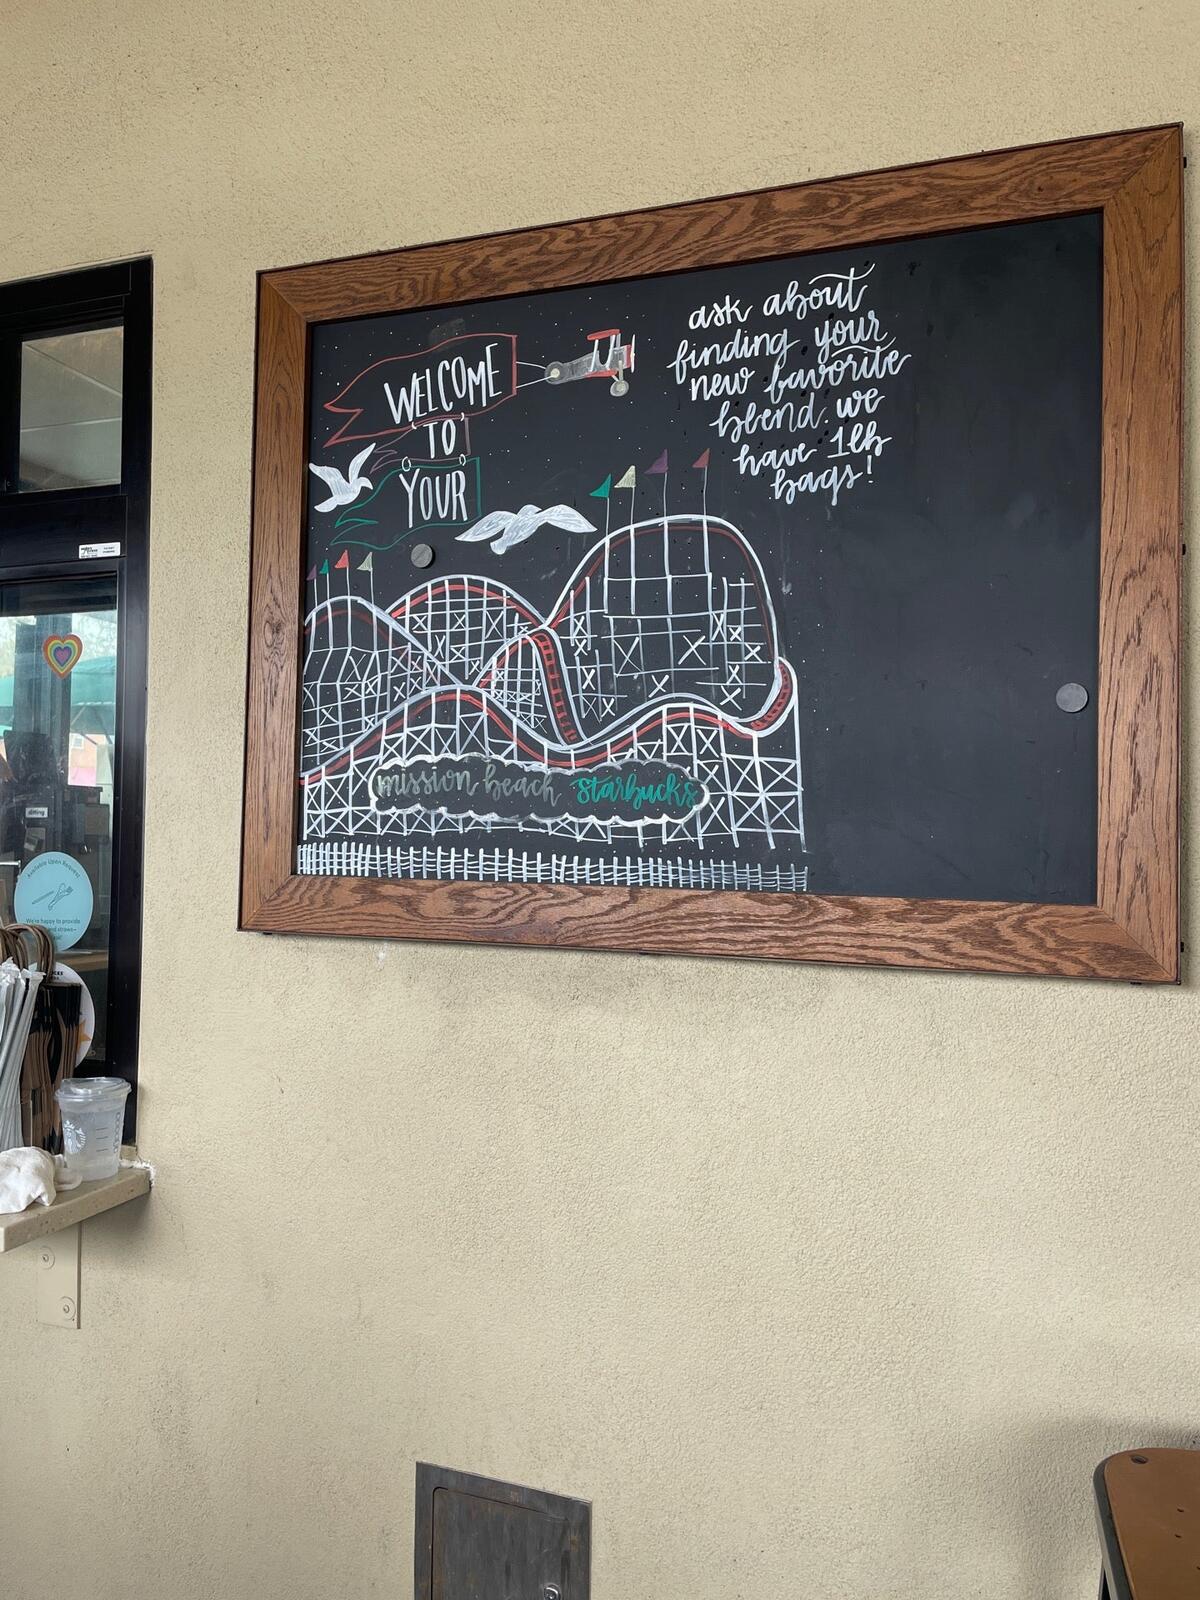 WELCOME
TO
YOUR
mission beach starbucks
ask about
finding your
new favorite
blend. we
have 1lb
bags!
Available Upon Request
We're happy to provide
and straws—